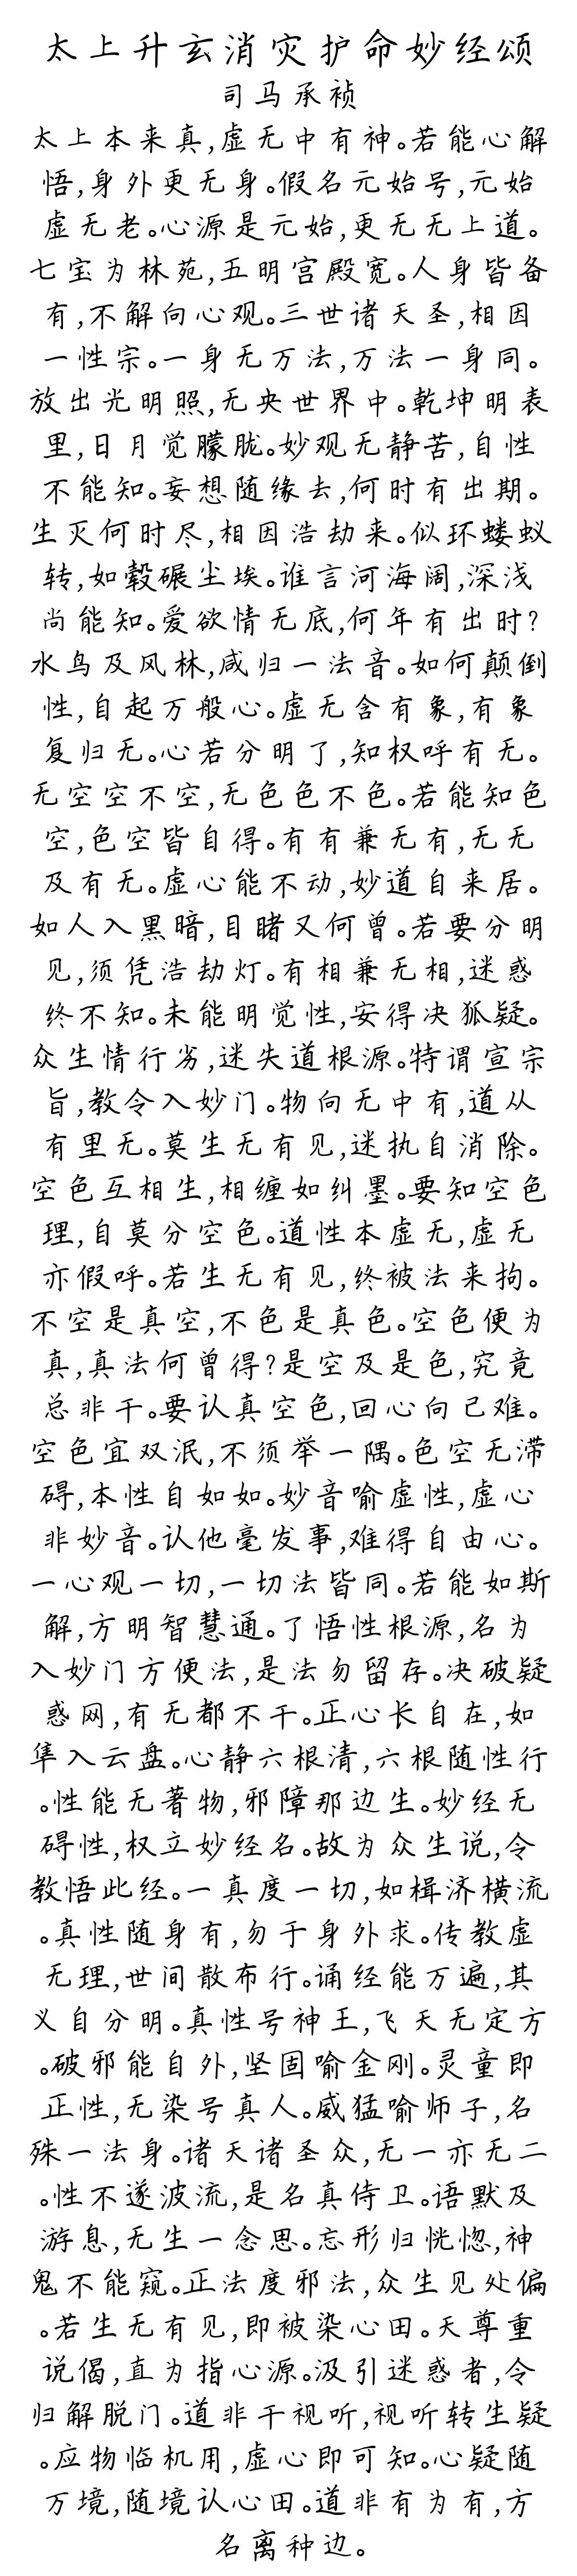 太上升玄消灾护命妙经颂
司马承祯
太上本来真,虚无中有神。若能心解
悟,身外更无身。假名元始号,元始
虚无老。心源是元始,更无无上道。
七宝为林苑,五明宫殿宽。人身皆备
有,不解向心观。三世诸天圣,相因
一性宗。一身无万法,万法一身同。
放出光明照,无央世界中。乾坤明表
里,日月觉朦胧。妙观无静苦,自性
不能知。妄想随缘去,何时有出期。
生灭何时尽,相因浩劫来。似环蝼蚁
转,如毂碾尘埃。谁言河海阔,深浅
尚能知。爱欲情无底,何年有出时?
水鸟及风林,咸归一法音。如何颠倒
性,自起万般心。虚无含有象,有象
复归无。心若分明了,知权呼有无。
无空空不空,无色色不色。若能知色
空,色空皆自得。有有兼无有,无无
及有无。虚心能不动,妙道自来居。
如人入黑暗,目睹又何曾。若要分明
见,须凭浩劫灯。有相兼无相,迷惑
终不知。未能明觉性,安得决狐疑。
众生情行劣,迷失道根源。特谓宣宗
旨,教令入妙门。物向无中有,道从
有里无。莫生无有见,迷执自消除。
空色互相生,相缠如纠墨。要知空色
理,自莫分空色。道性本虚无,虚无
亦假呼。若生无有见,终被法来拘。
不空是真空,不色是真色。空色便为
真,真法何曾得?是空及是色,究竟
总非干。要认真空色,回心向己难。
空色宜双泯,不须举一隅。色空无滞
碍,本性自如如。妙音喻虚性,虚心
非妙音。认他毫发事,难得自由心。
一心观一切,一切法皆同。若能如斯
解,方明智慧通。了悟性根源,名为
入妙门方便法,是法勿留存。决破疑
惑网,有无都不干。正心长自在,如
隼入云盘。心静六根清,六根随性行
。性能无著物,邪障那边生。妙经无
碍性,权立妙经名。故为众生说,令
教悟此经。一真度一切,如楫济横流
。真性随身有,勿于身外求。传教虚
无理,世间散布行。诵经能万遍,其
义自分明。真性号神王,飞天无定方
。破邪能自外,坚固喻金刚。灵童即
正性,无染号真人。威猛喻师子,名
殊一法身。诸天诸圣众,无一亦无二
。性不遂波流,是名真侍卫。语默及
游息,无生一念思。忘形归恍惚,神
鬼不能窥。正法度邪法,众生见处偏
。若生无有见,即被染心田。天尊重
说偈,直为指心源。汲引迷惑者,令
归解脱门。道非干视听,视听转生疑
。应物临机用,虚心即可知。心疑随
万境,随境认心田。道非有为有,方
名离种边。